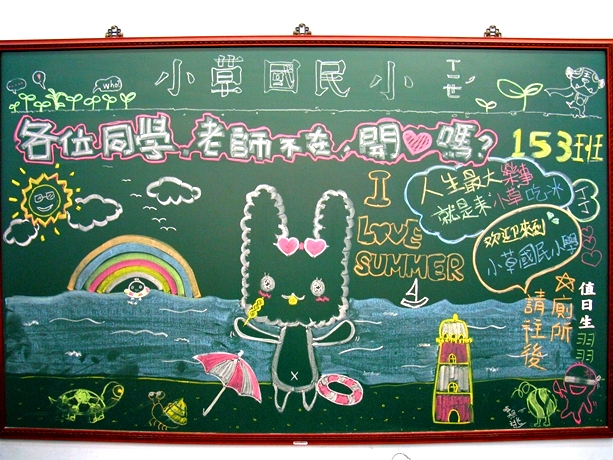 Who!
小草國民小
丁二世
各位同學,老師不在,開♡嗎?
153班
I
LOVE
SUMMER
人生最大樂事
就是來小草吃冰
欢迎來到
小草國民小學
☆廁所
請往後
值日生
羽
羽